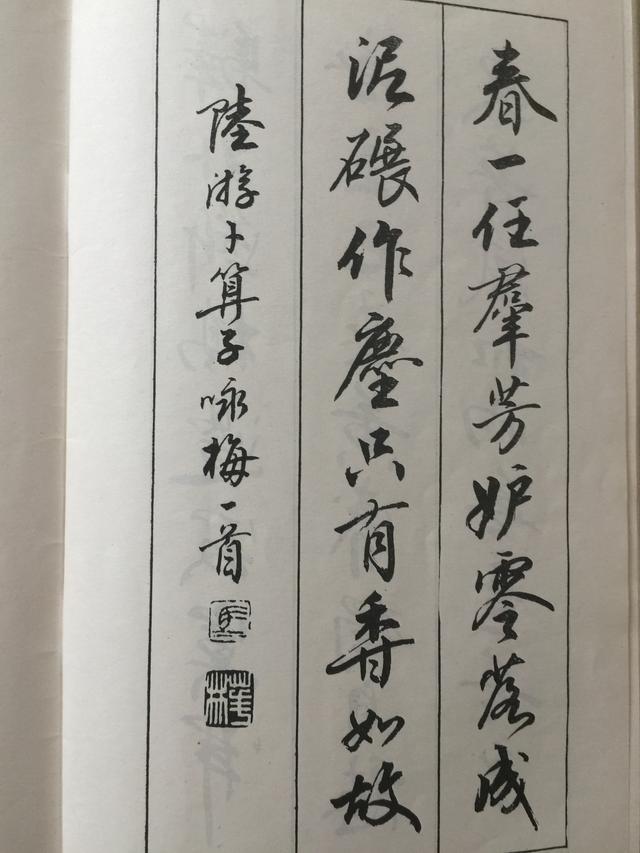 春一任羣芳妒零落成
泥碾作塵只有香如故
陸游卜算子咏梅一首